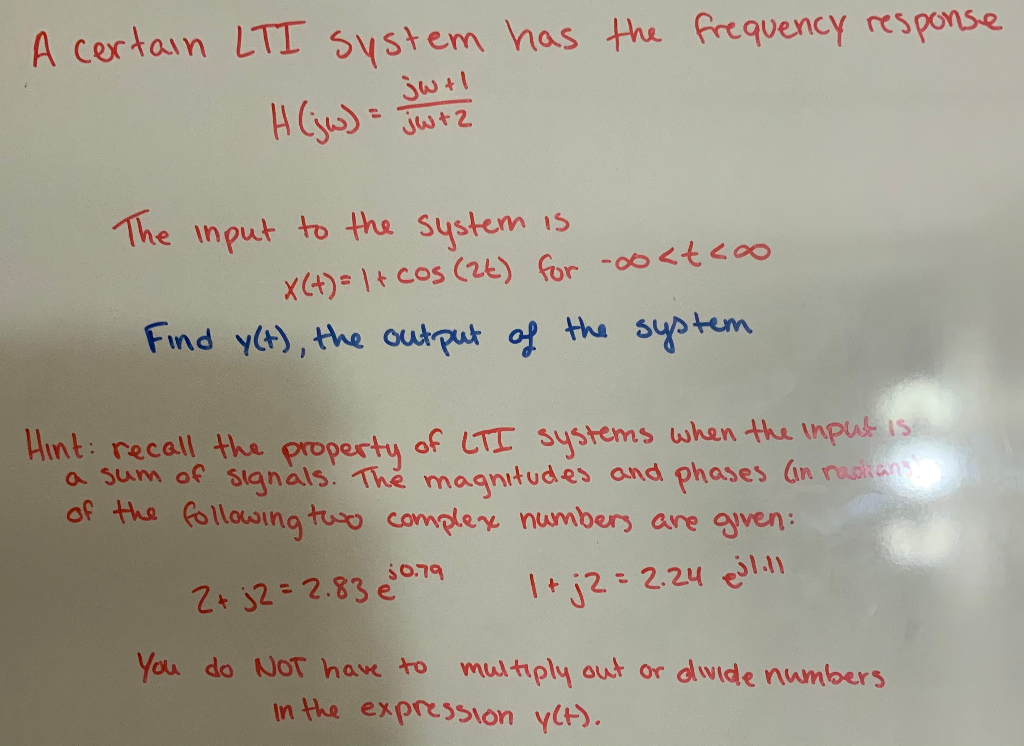 A certain LTI system has the frequency response
H(jω) = (jω+1)/(jω+2)
The input to the system is
x(t) = 1 + cos(2t) for -∞<t<∞
Find y(t), the output of the system
Hint: recall the property of LTI systems when the input is
a sum of signals. The magnitudes and phases (in radians)
of the following two complex numbers are given:
2+j2 = 2.83 e^j0.79    1+j2 = 2.24 e^j1.11
You do NOT have to multiply out or divide numbers
in the expression y(t).